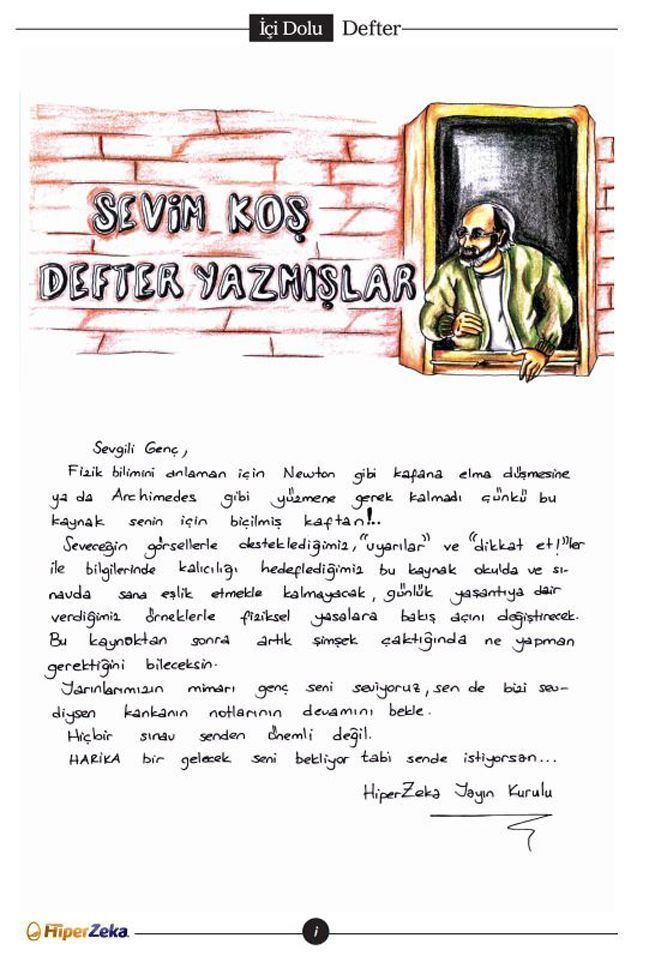 İçi Dolu Defter
SEVİM KOŞ
DEFTER YAZMIŞLAR
Sevgili Genç,
Fizik bilimini anlaman için Newton gibi kafana elma düşmesine
ya da Archimedes gibi yüzmene gerek kalmadı çünkü bu
kaynak senin için biçilmiş kaftan!..
Seveceğin görsellerle desteklediğimiz, "uyarılar" ve "dikkat et!"ler
ile bilgilerinde kalıcılığı hedeflediğimiz bu kaynak okulda ve sı-
navda sana eşlik etmekle kalmayacak, günlük yaşantıya dair
verdiğimiz örneklerle fiziksel yasalara bakış açını değiştirecek.
Bu kaynaktan sonra artık şimşek çaktığında ne yapman
gerektiğini bileceksin.
Yarınlarımızın mimarı genç seni seviyoruz, sen de bizi sev-
diysen kankanın notlarının devamını bekle.
Hiçbir sınav senden önemli değil.
HARİKA bir gelecek seni bekliyor tabi sende istiyorsan...
HiperZeka Yayın Kurulu
HiperZeka
i